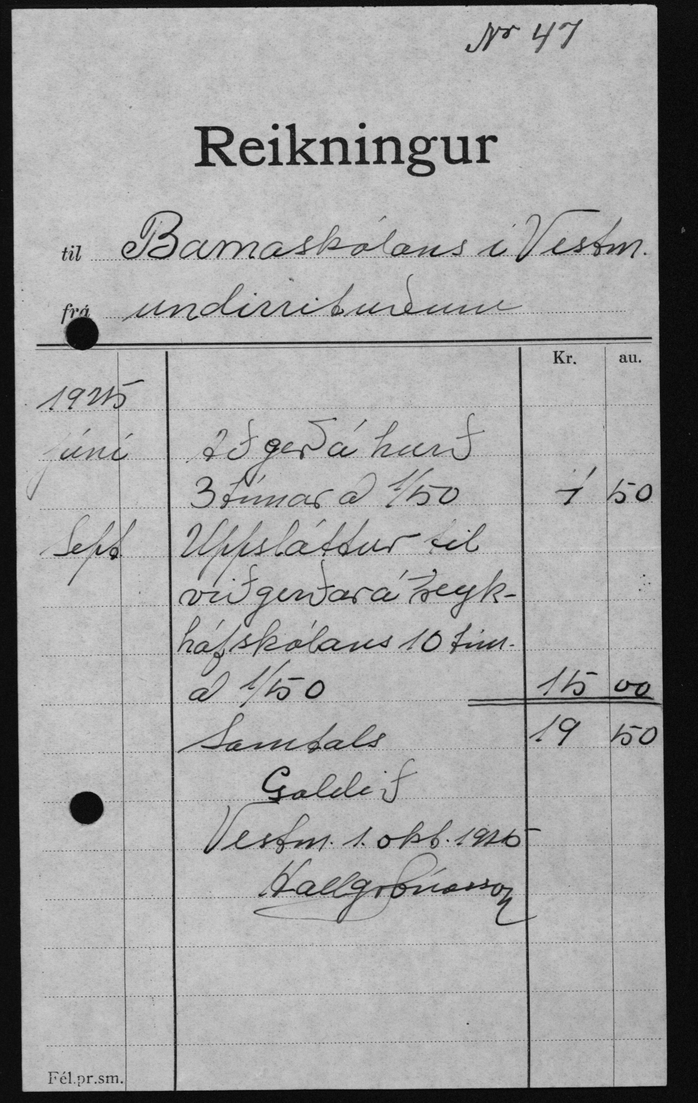 Nr 47
Reikningur
til Barnaskólans í Vestm.
frá undirrituðum
Kr. au.
1925
júní Aðgerð á hurð
3 tímar á 1/50 4 50
Sept Uppsláttur til
viðgerðar á reyk-
háf skólans 10 tím.
á 1/50 15 00
Samtals 19 50
Greitt
Vestm. 1. okt. 1925
Hallgr.
Fél.pr.sm.